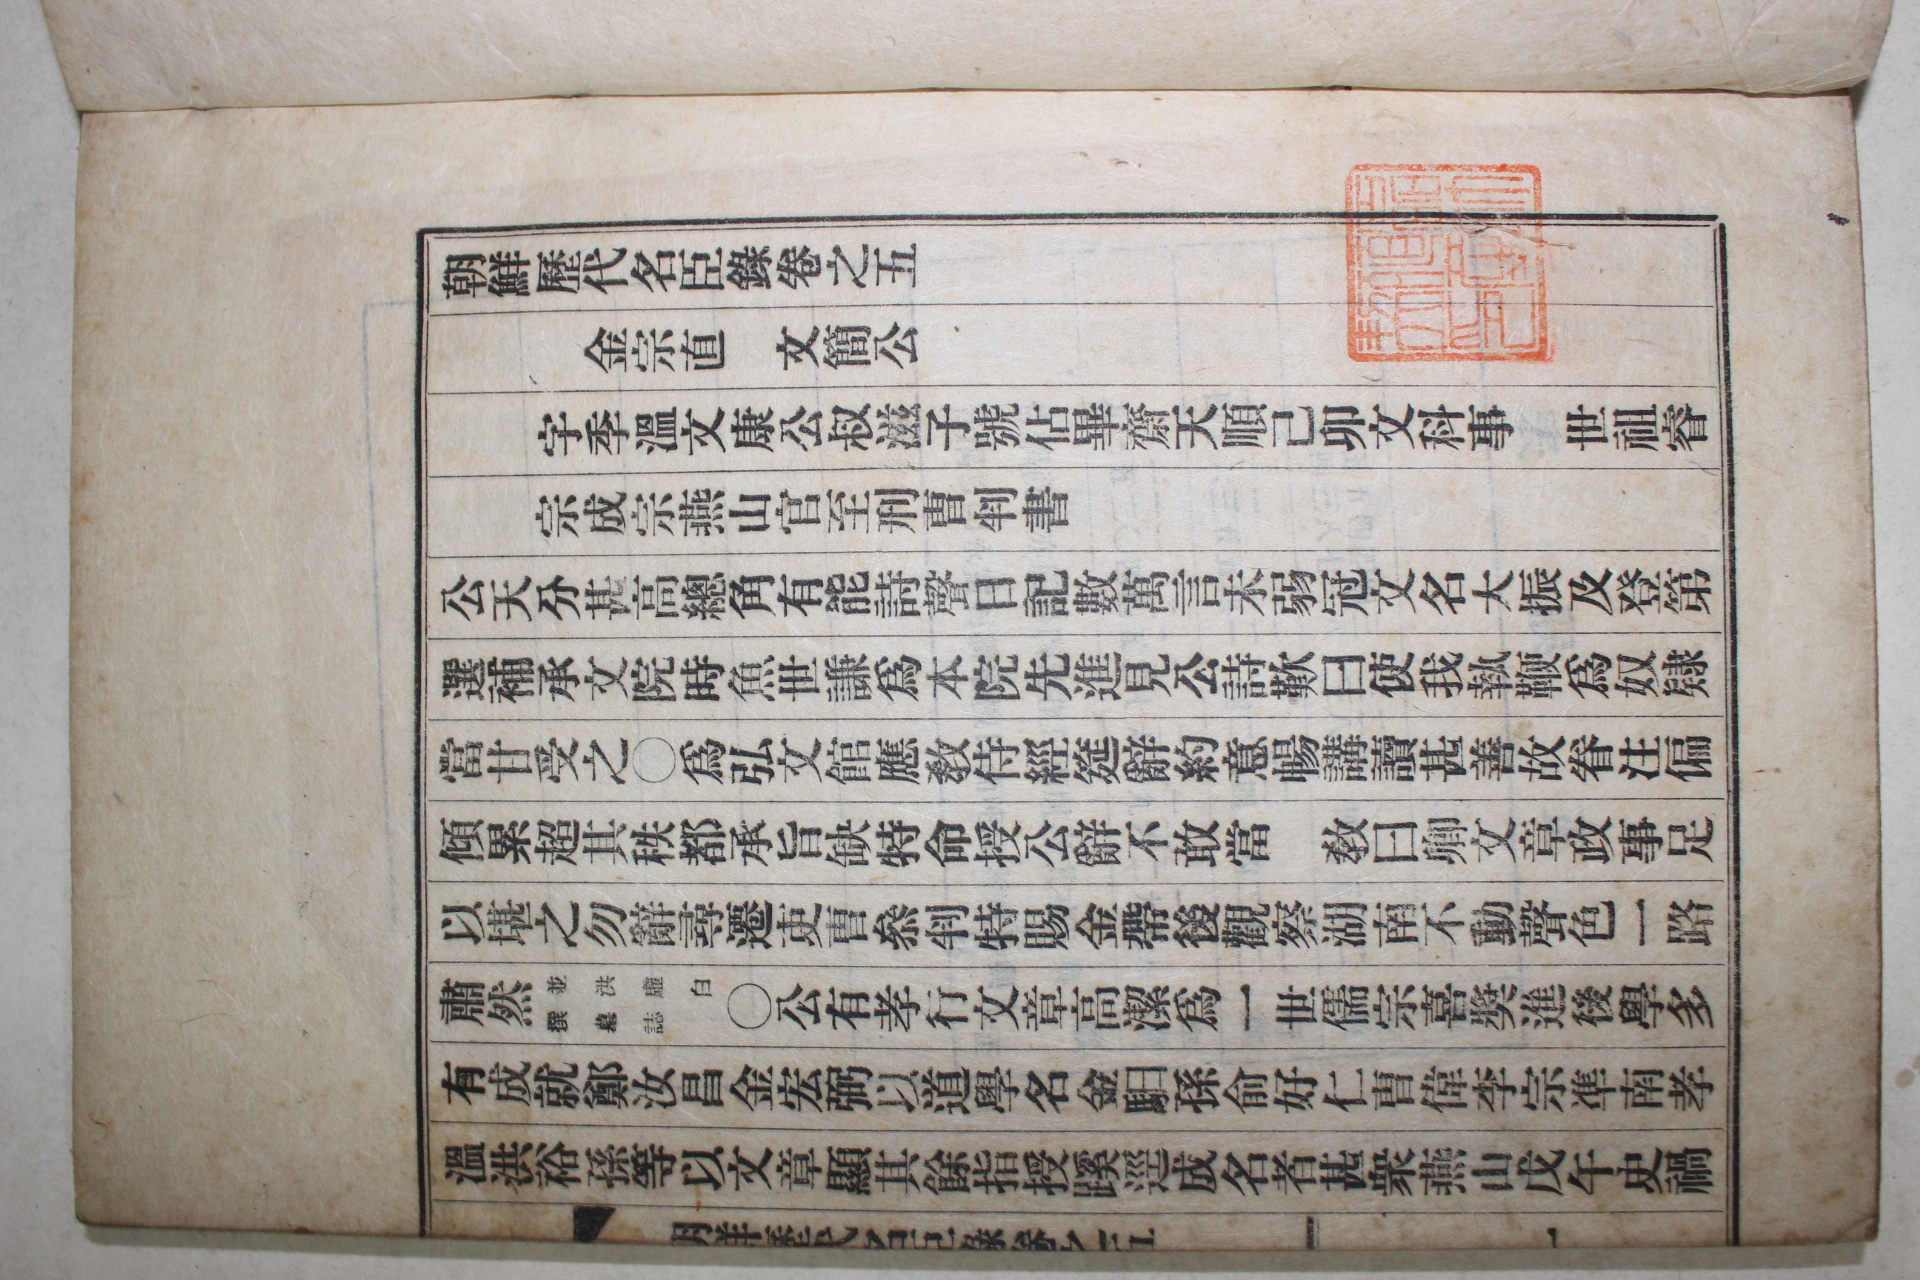 朝鮮歷代名臣錄卷之五
金宗直 文簡公
字季溫文康公叔滋子號佔畢齋天順己卯文科事 世祖睿
宗成宗燕山官至刑曹判書
公天分甚高總角有能詩聲日記數萬言未弱冠文名大振及登第
選補承文院時魚世謙爲本院先進見公詩歎曰使我執鞭爲奴隷
當甘受之○爲弘文館應敎侍經筵辭約意暢講讀甚善故眷注偏
傾累超其秩都承旨缺特命授公辭不敢當 敎曰卿文章政事足
以堪之勿辭尋遷吏曹叅判特賜金帶後觀察湖南不動聲色一路
肅然並洪虛白撰墓誌○公有孝行文章高潔爲一世儒宗喜奬進後學多
有成就鄭汝昌金宏弼以道學名金馹孫俞好仁曹偉李宗準南孝
溫洪裕孫等以文章顯其餘指授蹊逕成名者甚衆燕山戊午史禍
朝鮮歷代名臣錄卷之五 一